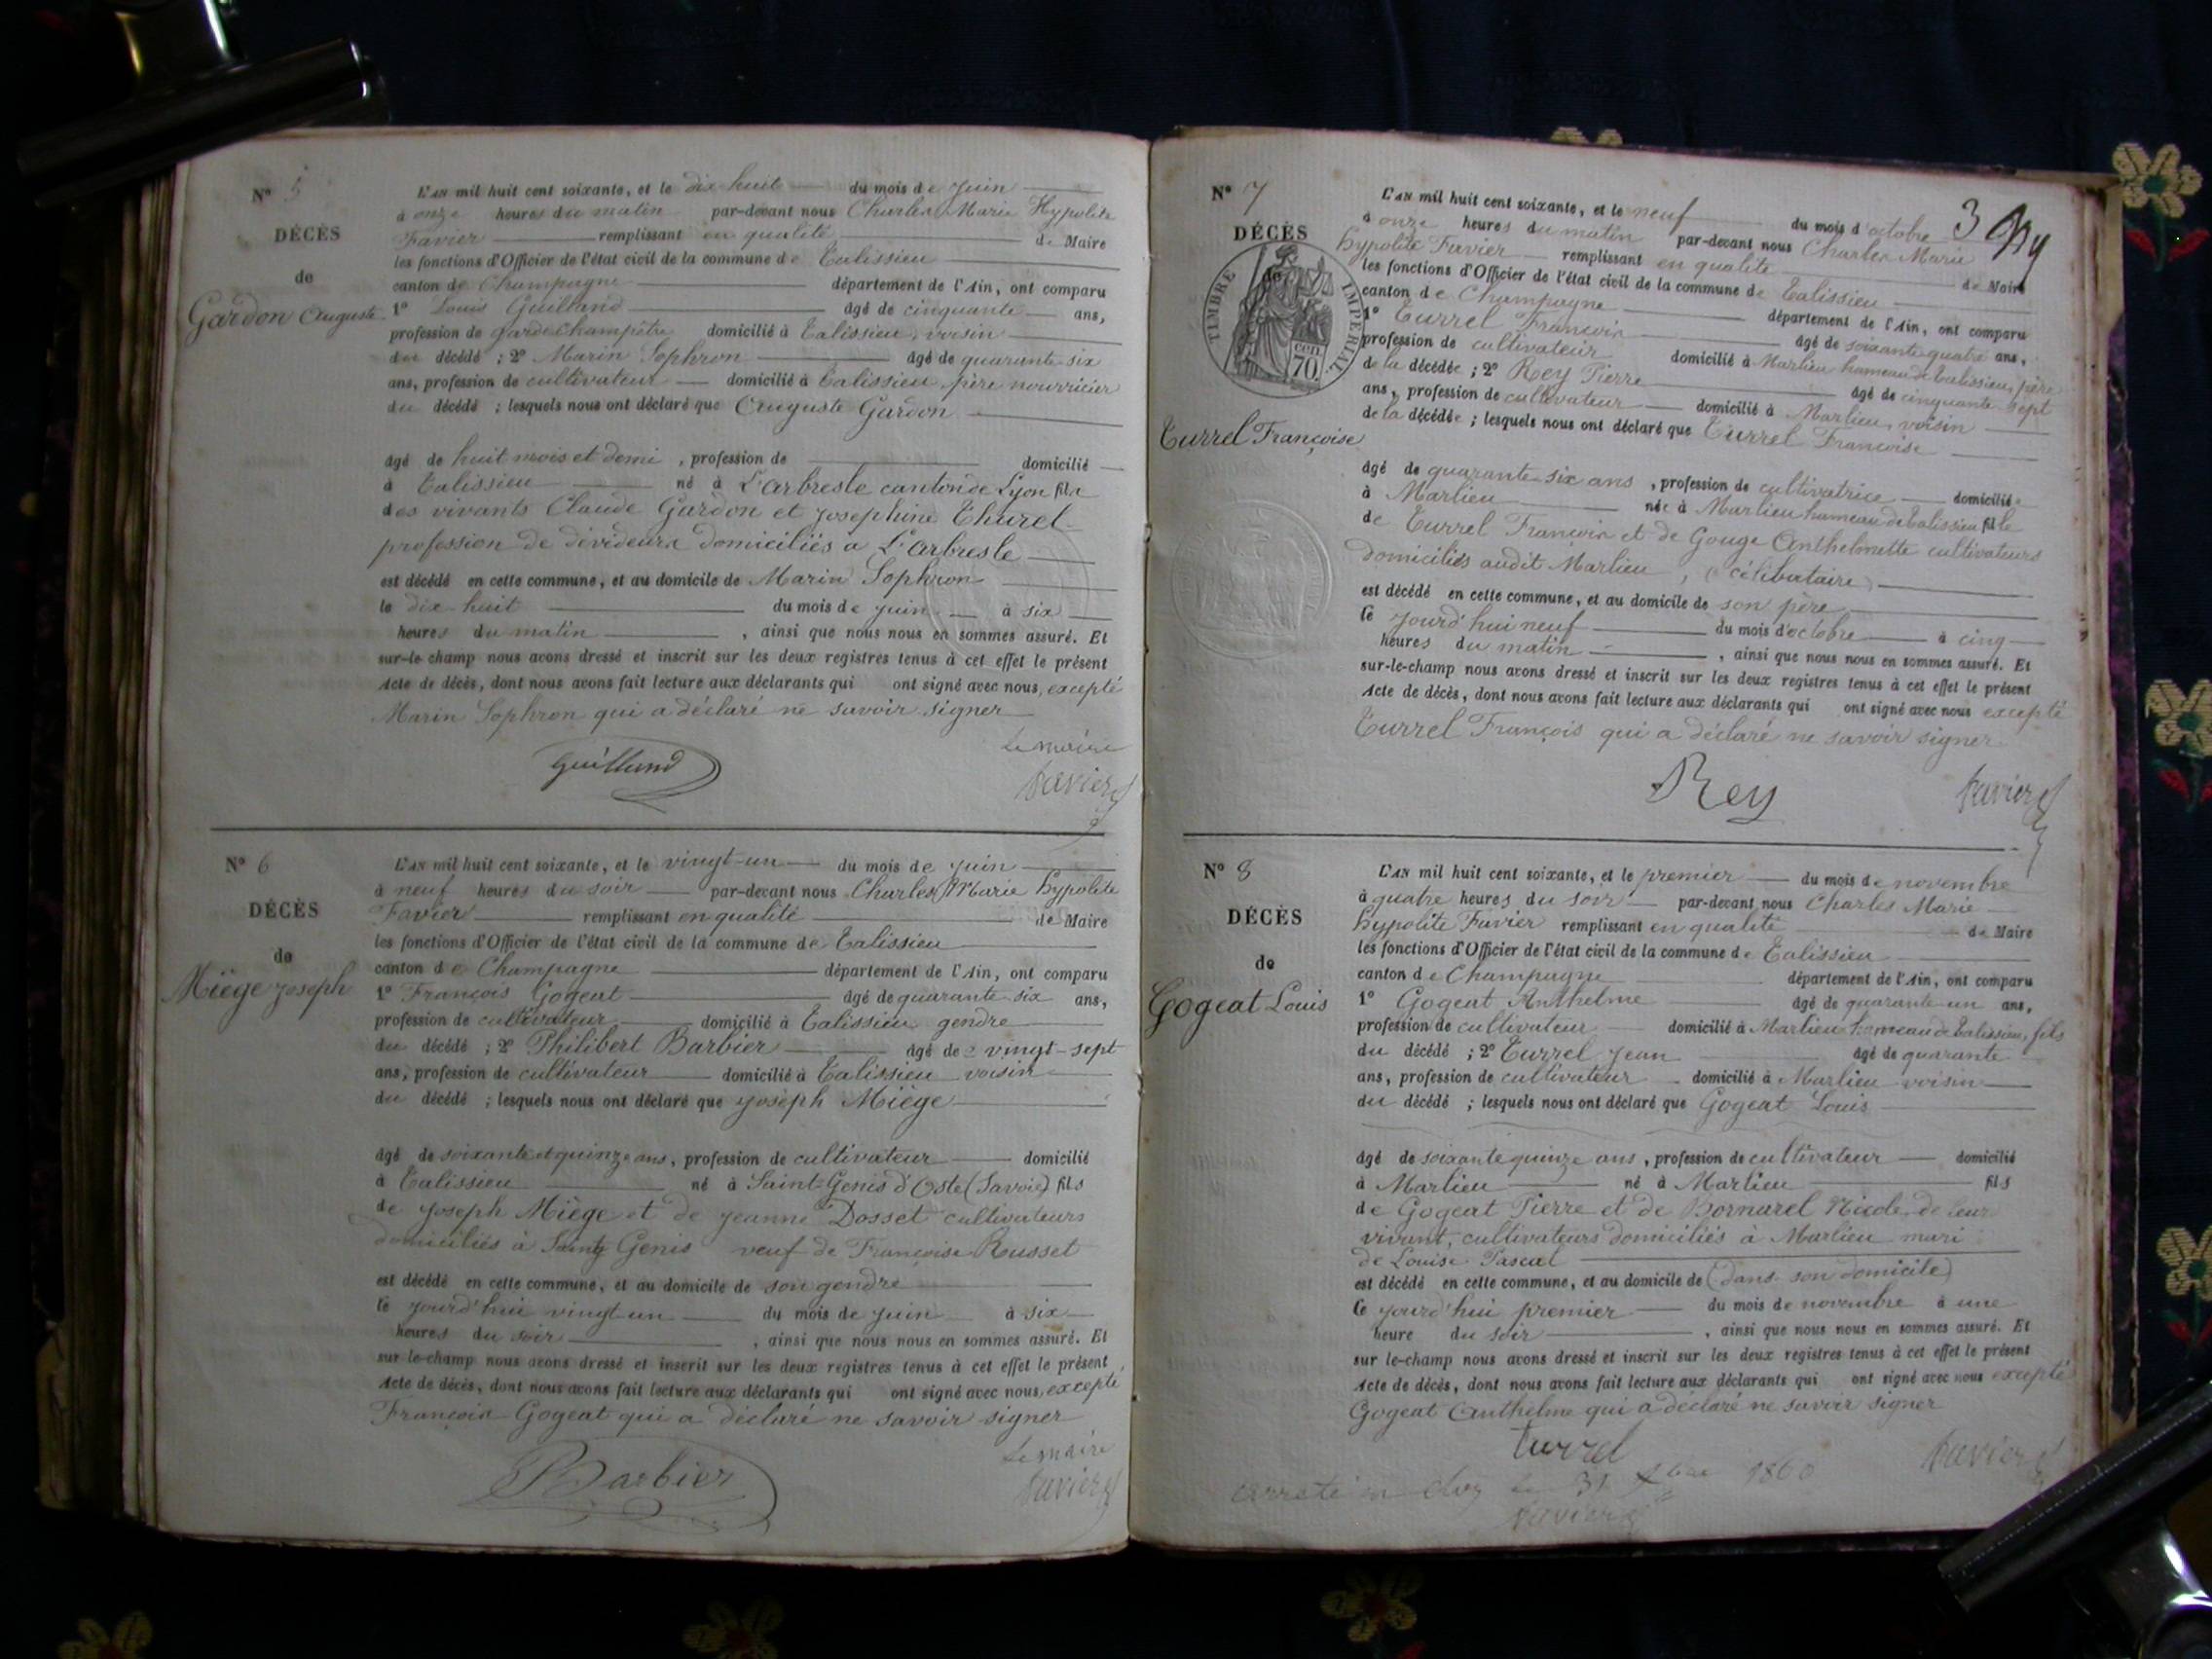 N° 5
DÉCÈS
de
Gardon Auguste
L'AN mil huit cent soixante, et le dix huit du mois de juin
à onze heures du matin par-devant nous Charles Marie Hypolite
Favier remplissant en qualité de Maire
les fonctions d'Officier de l'état civil de la commune de Talissieu
canton de Champagne département de l'Ain, ont comparu
1° Louis Guilland âgé de cinquante ans,
profession de garde champêtre domicilié à Talissieu, voisin
du décédé ; 2° Marin Sophron âgé de quarante six
ans, profession de cultivateur domicilié à Talissieu père nourricier
du décédé ; lesquels nous ont déclaré que Auguste Gardon
âgé de huit mois et demi , profession de domicilié
à Talissieu né à L'arbresle canton de Lyon fils
des vivants Claude Gardon et Josephine Thurel
profession de devideurs domiciliés a L'arbresle
est décédé en cette commune, et au domicile de Marin Sophron
le dix-huit du mois de juin à six
heures du matin , ainsi que nous nous en sommes assuré. Et
sur-le-champ nous avons dressé et inscrit sur les deux registres tenus à cet effet le présent
Acte de décès, dont nous avons fait lecture aux déclarants qui ont signé avec nous, excepté
Marin Sophron qui a déclaré ne savoir signer
Le maire
Guilland
Favier
N° 6
DÉCÈS
de
Miège Joseph
L'AN mil huit cent soixante, et le vingt-un du mois de juin
à neuf heures du soir par-devant nous Charles Marie hypolite
Favier remplissant en qualité de Maire
les fonctions d'Officier de l'état civil de la commune de Talissieu
canton de Champagne département de l'Ain, ont comparu
1° François Gogeat âgé de quarante six ans,
profession de cultivateur domicilié à Talissieu gendre
du décédé ; 2° Philibert Barbier âgé de vingt-sept
ans, profession de cultivateur domicilié à Talissieu voisin
du décédé ; lesquels nous ont déclaré que Joseph Miège
âgé de soixante et quinze ans, profession de cultivateur domicilié
à Talissieu né à Saint Genis d'Oste (Savoie) fils
de Joseph Miège et de Jeanne Dosset cultivateurs
domiciliés à Saint Genis veuf de Françoise Russet
est décédé en cette commune, et au domicile de son gendre
Ce jourd'hui vingt un du mois de juin à six
heures du soir , ainsi que nous nous en sommes assuré. Et
sur le-champ nous avons dressé et inscrit sur les deux registres tenus à cet effet le présent
Acte de décès, dont nous avons fait lecture aux déclarants qui ont signé avec nous, excepté
François Gogeat qui a déclaré ne savoir signer
Le maire
P Barbier
Favier
N° 7
DÉCÈS
de
TIMBRE IMPÉRIAL
70 cen.
Turrel Françoise
3
L'AN mil huit cent soixante, et le neuf du mois d'octobre
à onze heures du matin par-devant nous Charles Marie
hypolite Favier remplissant en qualité de Maire
les fonctions d'Officier de l'état civil de la commune de Talissieu
canton de Champagne département de l'Ain, ont comparu
1° Turrel François âgé de soixante quatre ans,
profession de cultivateur domicilié à Marlieu hameau de Talissieu, père
de la décédée ; 2° Rey Pierre âgé de cinquante sept
ans, profession de cultivateur domicilié à Marlieu, voisin
de la décédée ; lesquels nous ont déclaré que Turrel Françoise
âgé de quarante-six ans , profession de cultivatrice domicilié
à Marlieu née à Marlieu hameau de Talissieu fille
de Turrel François et de Gouge Anthelmette cultivateurs
domiciliés audit Marlieu , (célibataire)
est décédé en cette commune, et au domicile de son père
Ce jourd'hui neuf du mois d'octobre à cinq
heures du matin , ainsi que nous nous en sommes assuré. Et
sur-le-champ nous avons dressé et inscrit sur les deux registres tenus à cet effet le présent
Acte de décès, dont nous avons fait lecture aux déclarants qui ont signé avec nous excepté
Turrel François qui a déclaré ne savoir signer
Rey
Favier
N° 8
DÉCÈS
de
Gogeat Louis
L'AN mil huit cent soixante, et le premier du mois de novembre
à quatre heures du soir par-devant nous Charles Marie
hypolite Favier remplissant en qualité de Maire
les fonctions d'Officier de l'état civil de la commune de Talissieu
canton de Champagne département de l'Ain, ont comparu
1° Gogeat Anthelme âgé de quarante-un ans,
profession de cultivateur domicilié à Marlieu hameau de Talissieu, fils
du décédé ; 2° Turrel Jean âgé de quarante
ans, profession de cultivateur domicilié à Marlieu voisin
du décédé ; lesquels nous ont déclaré que Gogeat Louis
âgé de soixante quinze ans , profession de cultivateur domicilié
à Marlieu né à Marlieu fils
de Gogeat Pierre et de Bornarel Nicole, de leur
vivant, cultivateurs domiciliés à Marlieu mari
de Louise Pascal
est décédé en cette commune, et au domicile de (dans son domicile)
Ce jourd'hui premier du mois de novembre à une
heure du soir , ainsi que nous nous en sommes assuré. Et
sur le-champ nous avons dressé et inscrit sur les deux registres tenus à cet effet le présent
Acte de décès, dont nous avons fait lecture aux déclarants qui ont signé avec nous excepté
Gogeat Anthelme qui a déclaré ne savoir signer
turrel
Favier
arreté en clos le 31 Xbre 1860
Favier